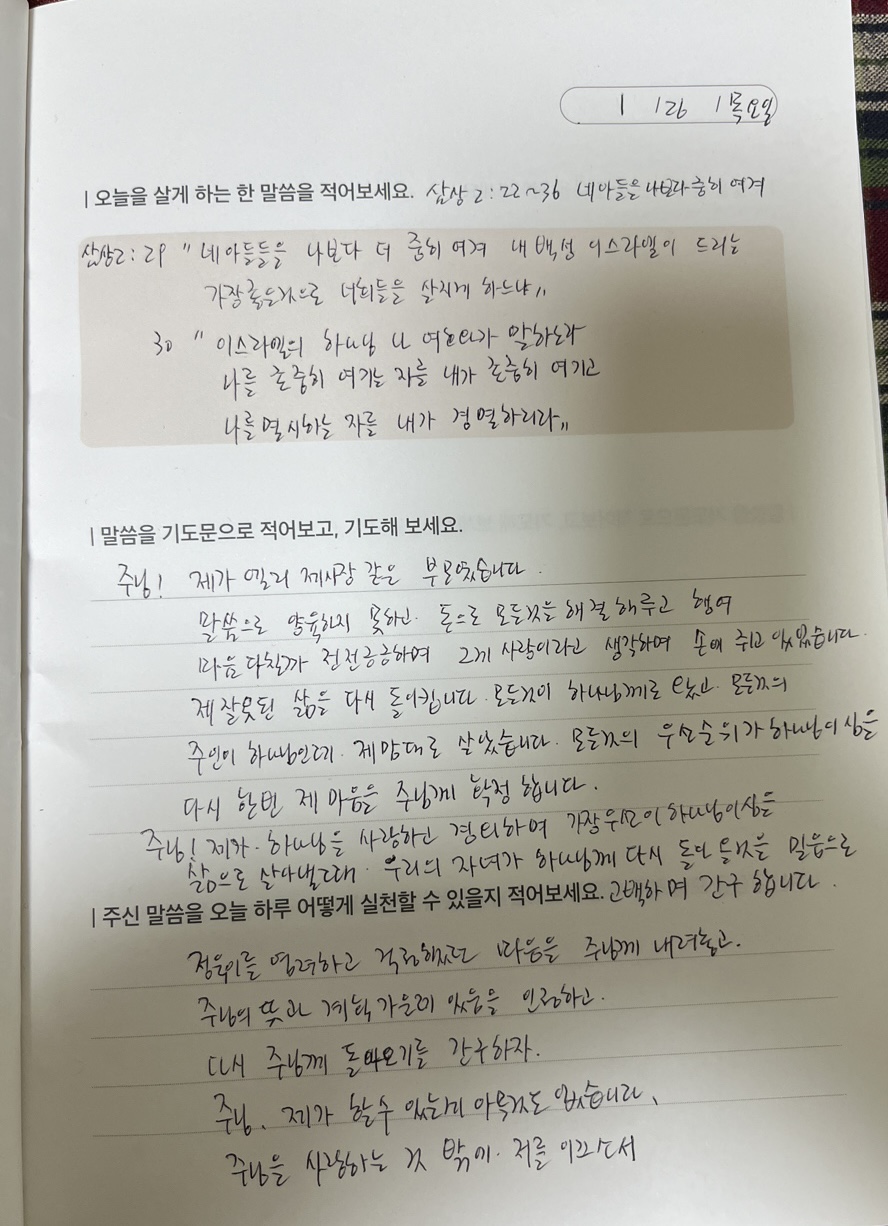 1 / 26 / 목요일
| 오늘을 살게 하는 한 말씀을 적어보세요. 삼상 2:22~36 네 아들을 나보다 중히 여겨
삼상 2:29 " 네 아들들을 나보다 더 중히 여겨 내 백성 이스라엘이 드리는
가장 좋은것으로 너희들을 살지게 하느냐"
30 " 이스라엘의 하나님 나 여호와가 말하노라
나를 존중히 여기는 자를 내가 존중히 여기고
나를 멸시하는 자를 내가 경멸하리라"
| 말씀을 기도문으로 적어보고, 기도해 보세요.
주님! 제가 엘리 제사장 같은 부모였습니다.
말씀으로 양육하지 못하고. 돈으로 모든것을 해결해주고 행여
마음 다칠까 전전긍긍하며 그게 사랑이라고 생각하며 손에 쥐고 있었습니다.
제 잘못된 삶을 다시 돌이킵니다. 모든것이 하나님께로 왔고. 모든것의
주인이 하나님인데. 제 맘대로 살았습니다. 모든것의 우선순위가 하나님이심을
다시 한번 제 마음을 주님께 확정 합니다.
주님! 제가. 하나님을 사랑하고 경외하며 가장 우선이 하나님이심을
삶으로 살아낼때. 우리의 자녀가 하나님께 다시 돌아 올것을 믿음으로
| 주신 말씀을 오늘 하루 어떻게 실천할 수 있을지 적어보세요. 고백하며 간구 합니다.
염려하고 걱정했던 마음을 주님께 내려놓고.
주님의 뜻과 계획 가운데 있음을 인정하고.
다시 주님께 돌아오기를 간구하자.
주님. 제가 할수 있는게 아무것도 없습니다.
주님을 사랑하는 것 밖에. 저를 이끄소서